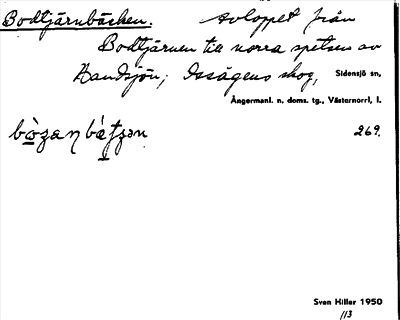 Bodtjärnbäcken. Avloppet från
Bodtjärnen till norra spetsen av
Handsjön; Issågens skog, Sidensjö sn,
Ångermanl. n. doms. tg., Västernorrl. l.
269.
Sven Hiller 1950
113